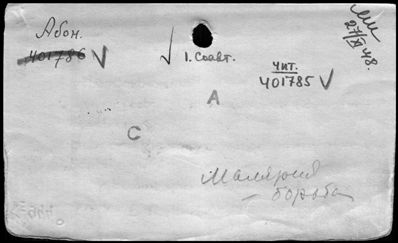 Абон.
401786 V
1. Соавт.
чит.
401785 V
27/XI 48.
А
С
Малярия
– борьба